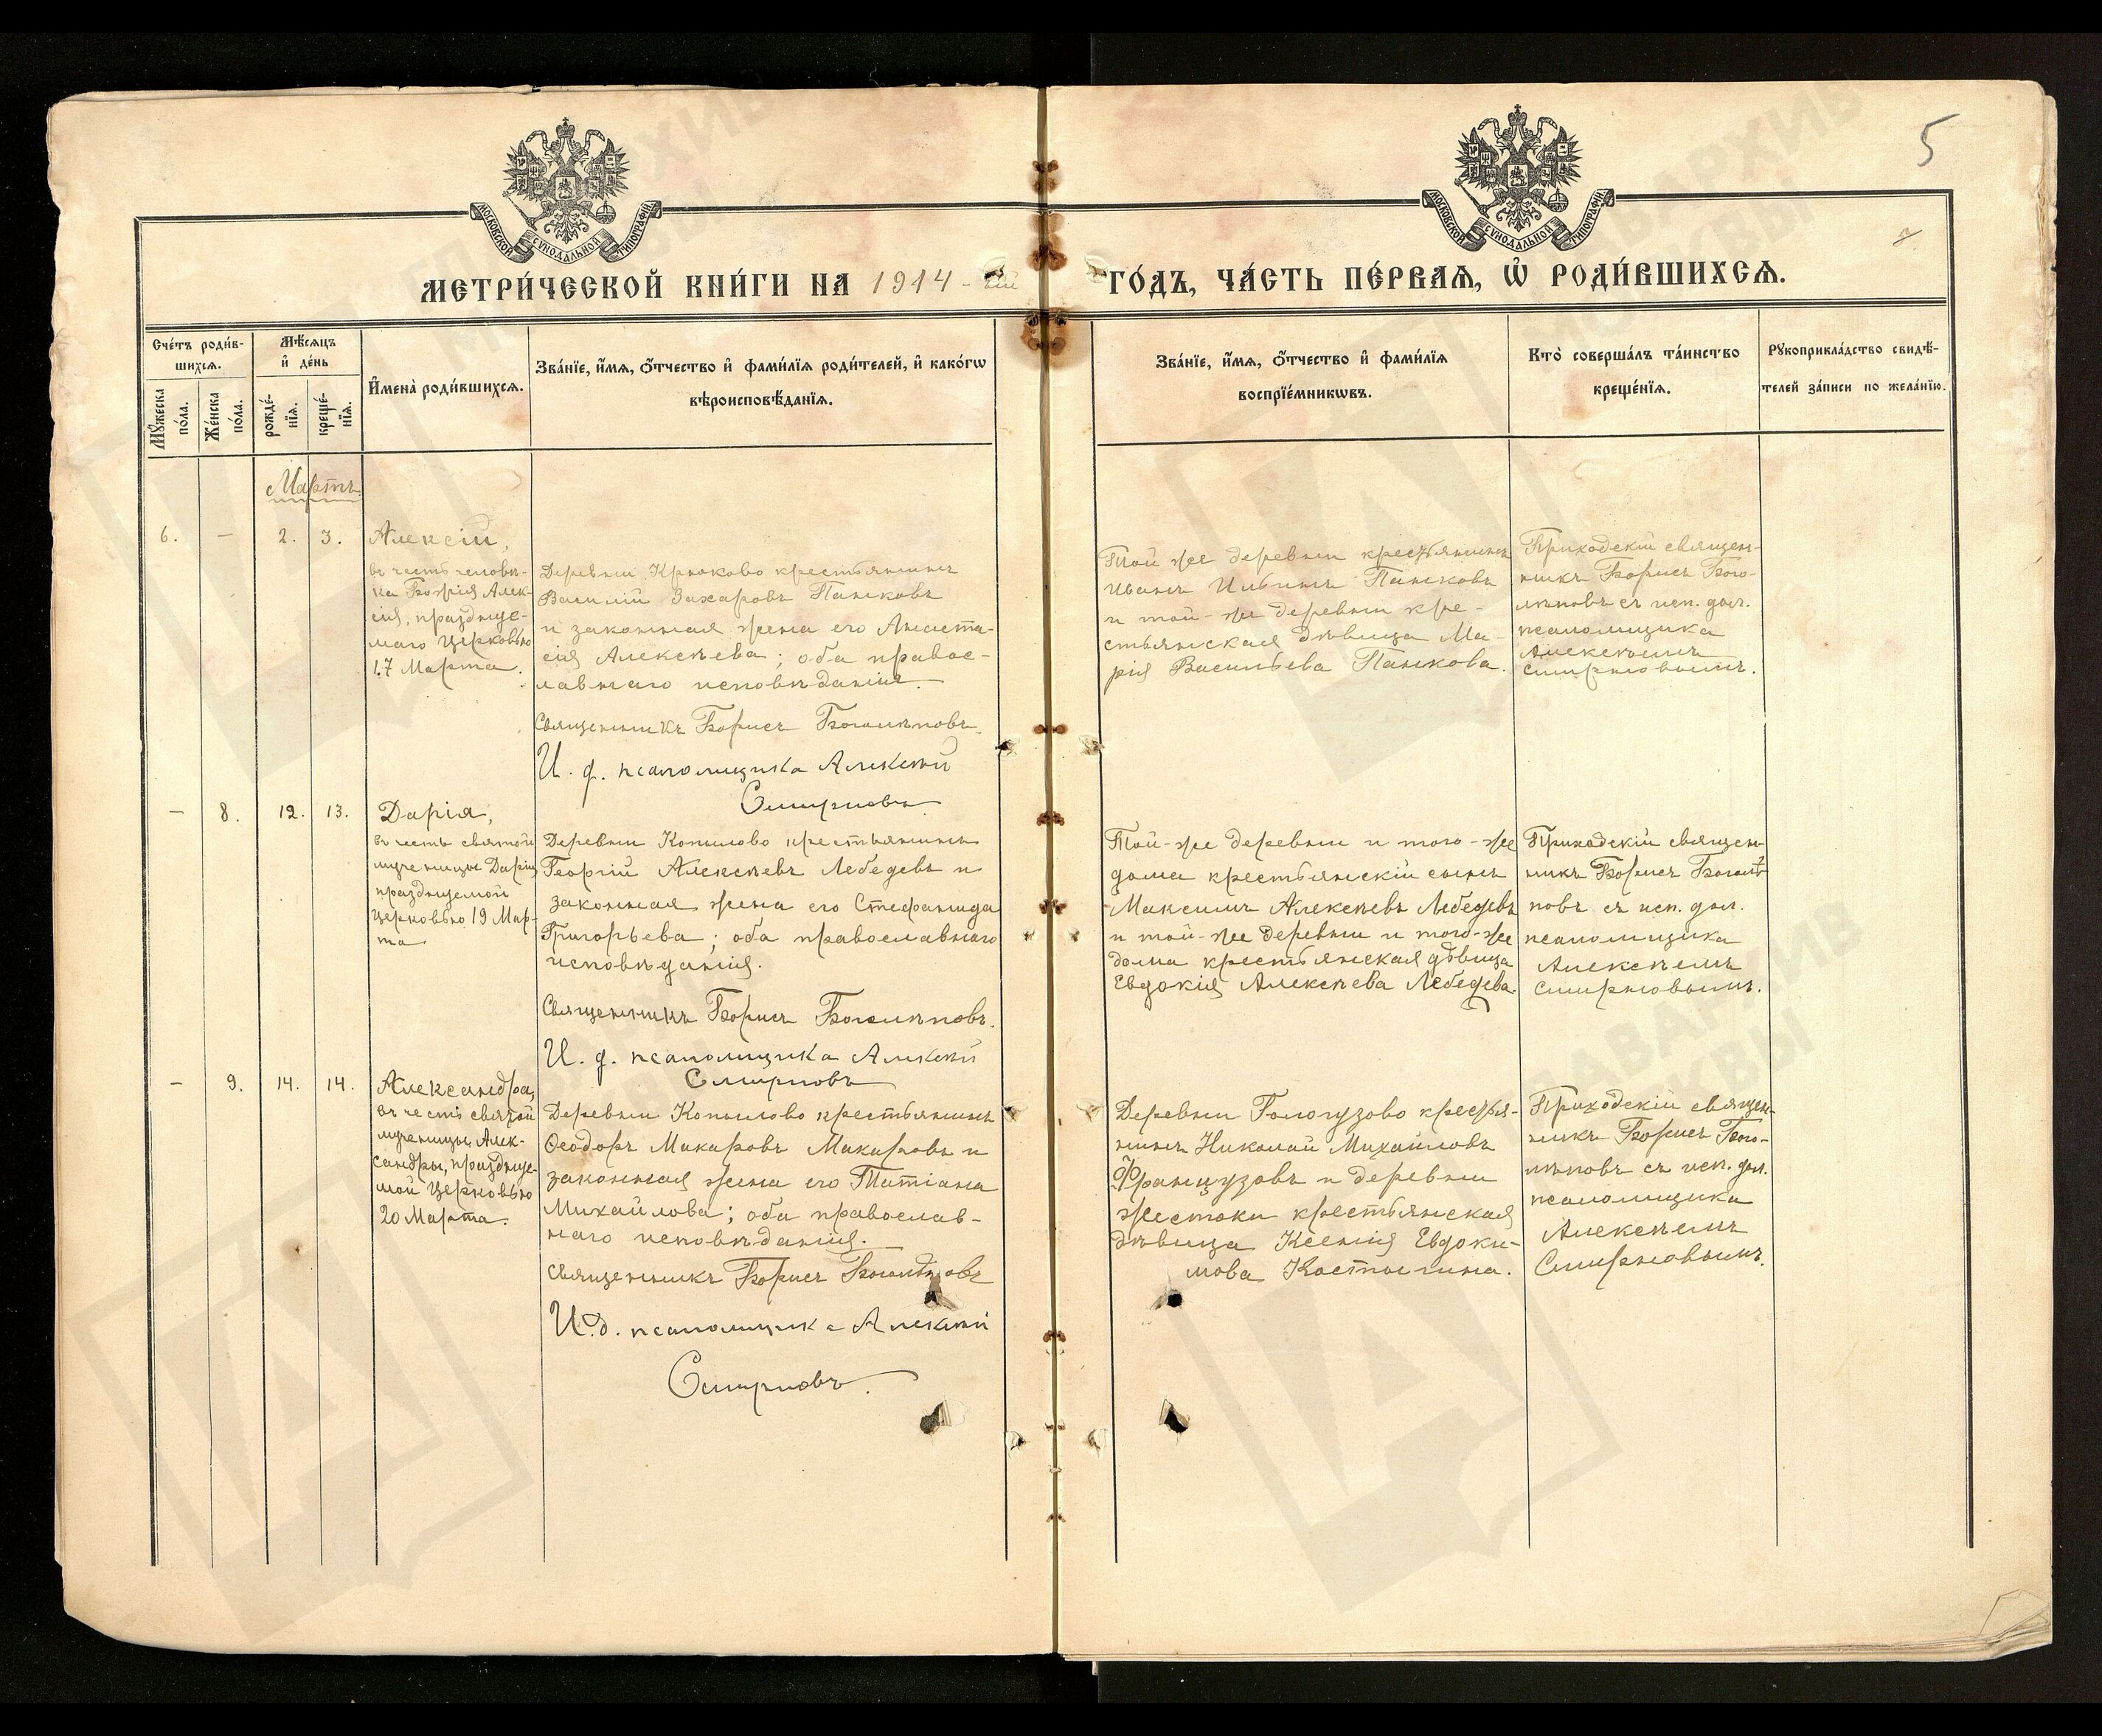 5
МОСКОВСКОЙ СѴНОДАЛЬНОЙ ТИПОГРАФІИ
МОСКОВСКОЙ СѴНОДАЛЬНОЙ ТИПОГРАФІИ
МЕТРИ́ЧЕСКОЙ КНИ́ГИ НА 1914 - ый ГО́ДЪ, ЧА́СТЬ ПЕ́РВАѦ, Ѽ РОДИ́ВШИХСѦ.
Сче́тъ роди́в-
шихсѧ.
Мꙋжеска по́ла.
Же́нска по́ла.
Мѣ́сѧцъ
и҆ де́нь
рожде́-
нїѧ.
креще́-
нїѧ.
И҆мена̀ роди́вшихсѧ.
Зва́нїе, и҆́мѧ, ѻ҆́тчество и҆ фами́лїѧ роди́телей, и҆ како́гѡ
вѣроисповѣ́данїѧ.
Зва́нїе, и҆́мѧ, ѻ҆́тчество и҆ фами́лїѧ
воспрїе́мникѡвъ.
Кто̀ соверша́лъ та́инство
креще́нїѧ.
Рꙋкоприкла́дство свидѣ́-
телей за́писи по жела́нїю.
Мартъ.
6. - 2. 3.
Алексій,
въ честь человѣ-
ка Божія Алек-
сія, празднуе-
маго Церковью
17 Марта.
Деревни Крюково крестьянинъ
Василій Захаровъ Паньковъ
и законная жена его Анаста-
сія Алексѣева; оба правос-
лавнаго исповѣданія.
Священникъ Борисъ Боголѣповъ.
И. д. псаломщика Алексѣй
Смирновъ
Той же деревни крестьянинъ
Иванъ Ильинъ Паньковъ
и той-же деревни кре-
стьянская дѣвица Ма-
рія Васильева Панькова.
Приходскій священ-
никъ Борисъ Бого-
лѣповъ съ исп. дол.
псаломщика
Алексѣемъ
Смирновымъ.
- 8. 12. 13.
Дарія,
въ честь святой
мученицы Даріи,
празднуемой
Церковью 19 Мар-
та
Деревни Копылово крестьянинъ
Георгій Алексѣевъ Лебедевъ и
законная жена его Стефанида
Григорьева; оба православнаго
исповѣданія.
Священникъ Борисъ Боголѣповъ.
И. д. псаломщика Алексѣй
Смирновъ
Той-же деревни и того-же
дома крестьянскій сынъ
Максимъ Алексѣевъ Лебедевъ
и той-же деревни и того-же
дома крестьянская дѣвица
Евдокія Алексѣева Лебедева.
Приходскій священ-
никъ Борисъ Боголѣ-
повъ съ исп. дол.
псаломщика
Алексѣемъ
Смирновымъ.
- 9. 14. 14.
Александра,
въ честь святой
мученицы Алек-
сандры, празднуе-
мой Церковью
20 Марта.
Деревни Копылово крестьянинъ
Ѳеодоръ Макаровъ Макаровъ и
законная жена его Татіана
Михайлова; оба православ-
наго исповѣданія.
Священникъ Борисъ Боголѣповъ
И. д. псаломщика Алексѣй
Смирновъ.
Деревни Гологузово крестья-
нинъ Николай Михайловъ
Французовъ и деревни
Жестоки крестьянская
дѣвица Ксенія Евдоки-
мова Костыгина.
Приходскій священ-
никъ Борисъ Бого-
лѣповъ съ исп. дол.
псаломщика
Алексѣемъ
Смирновымъ.
ГЛАВАРХИВ
МОСКВЫ